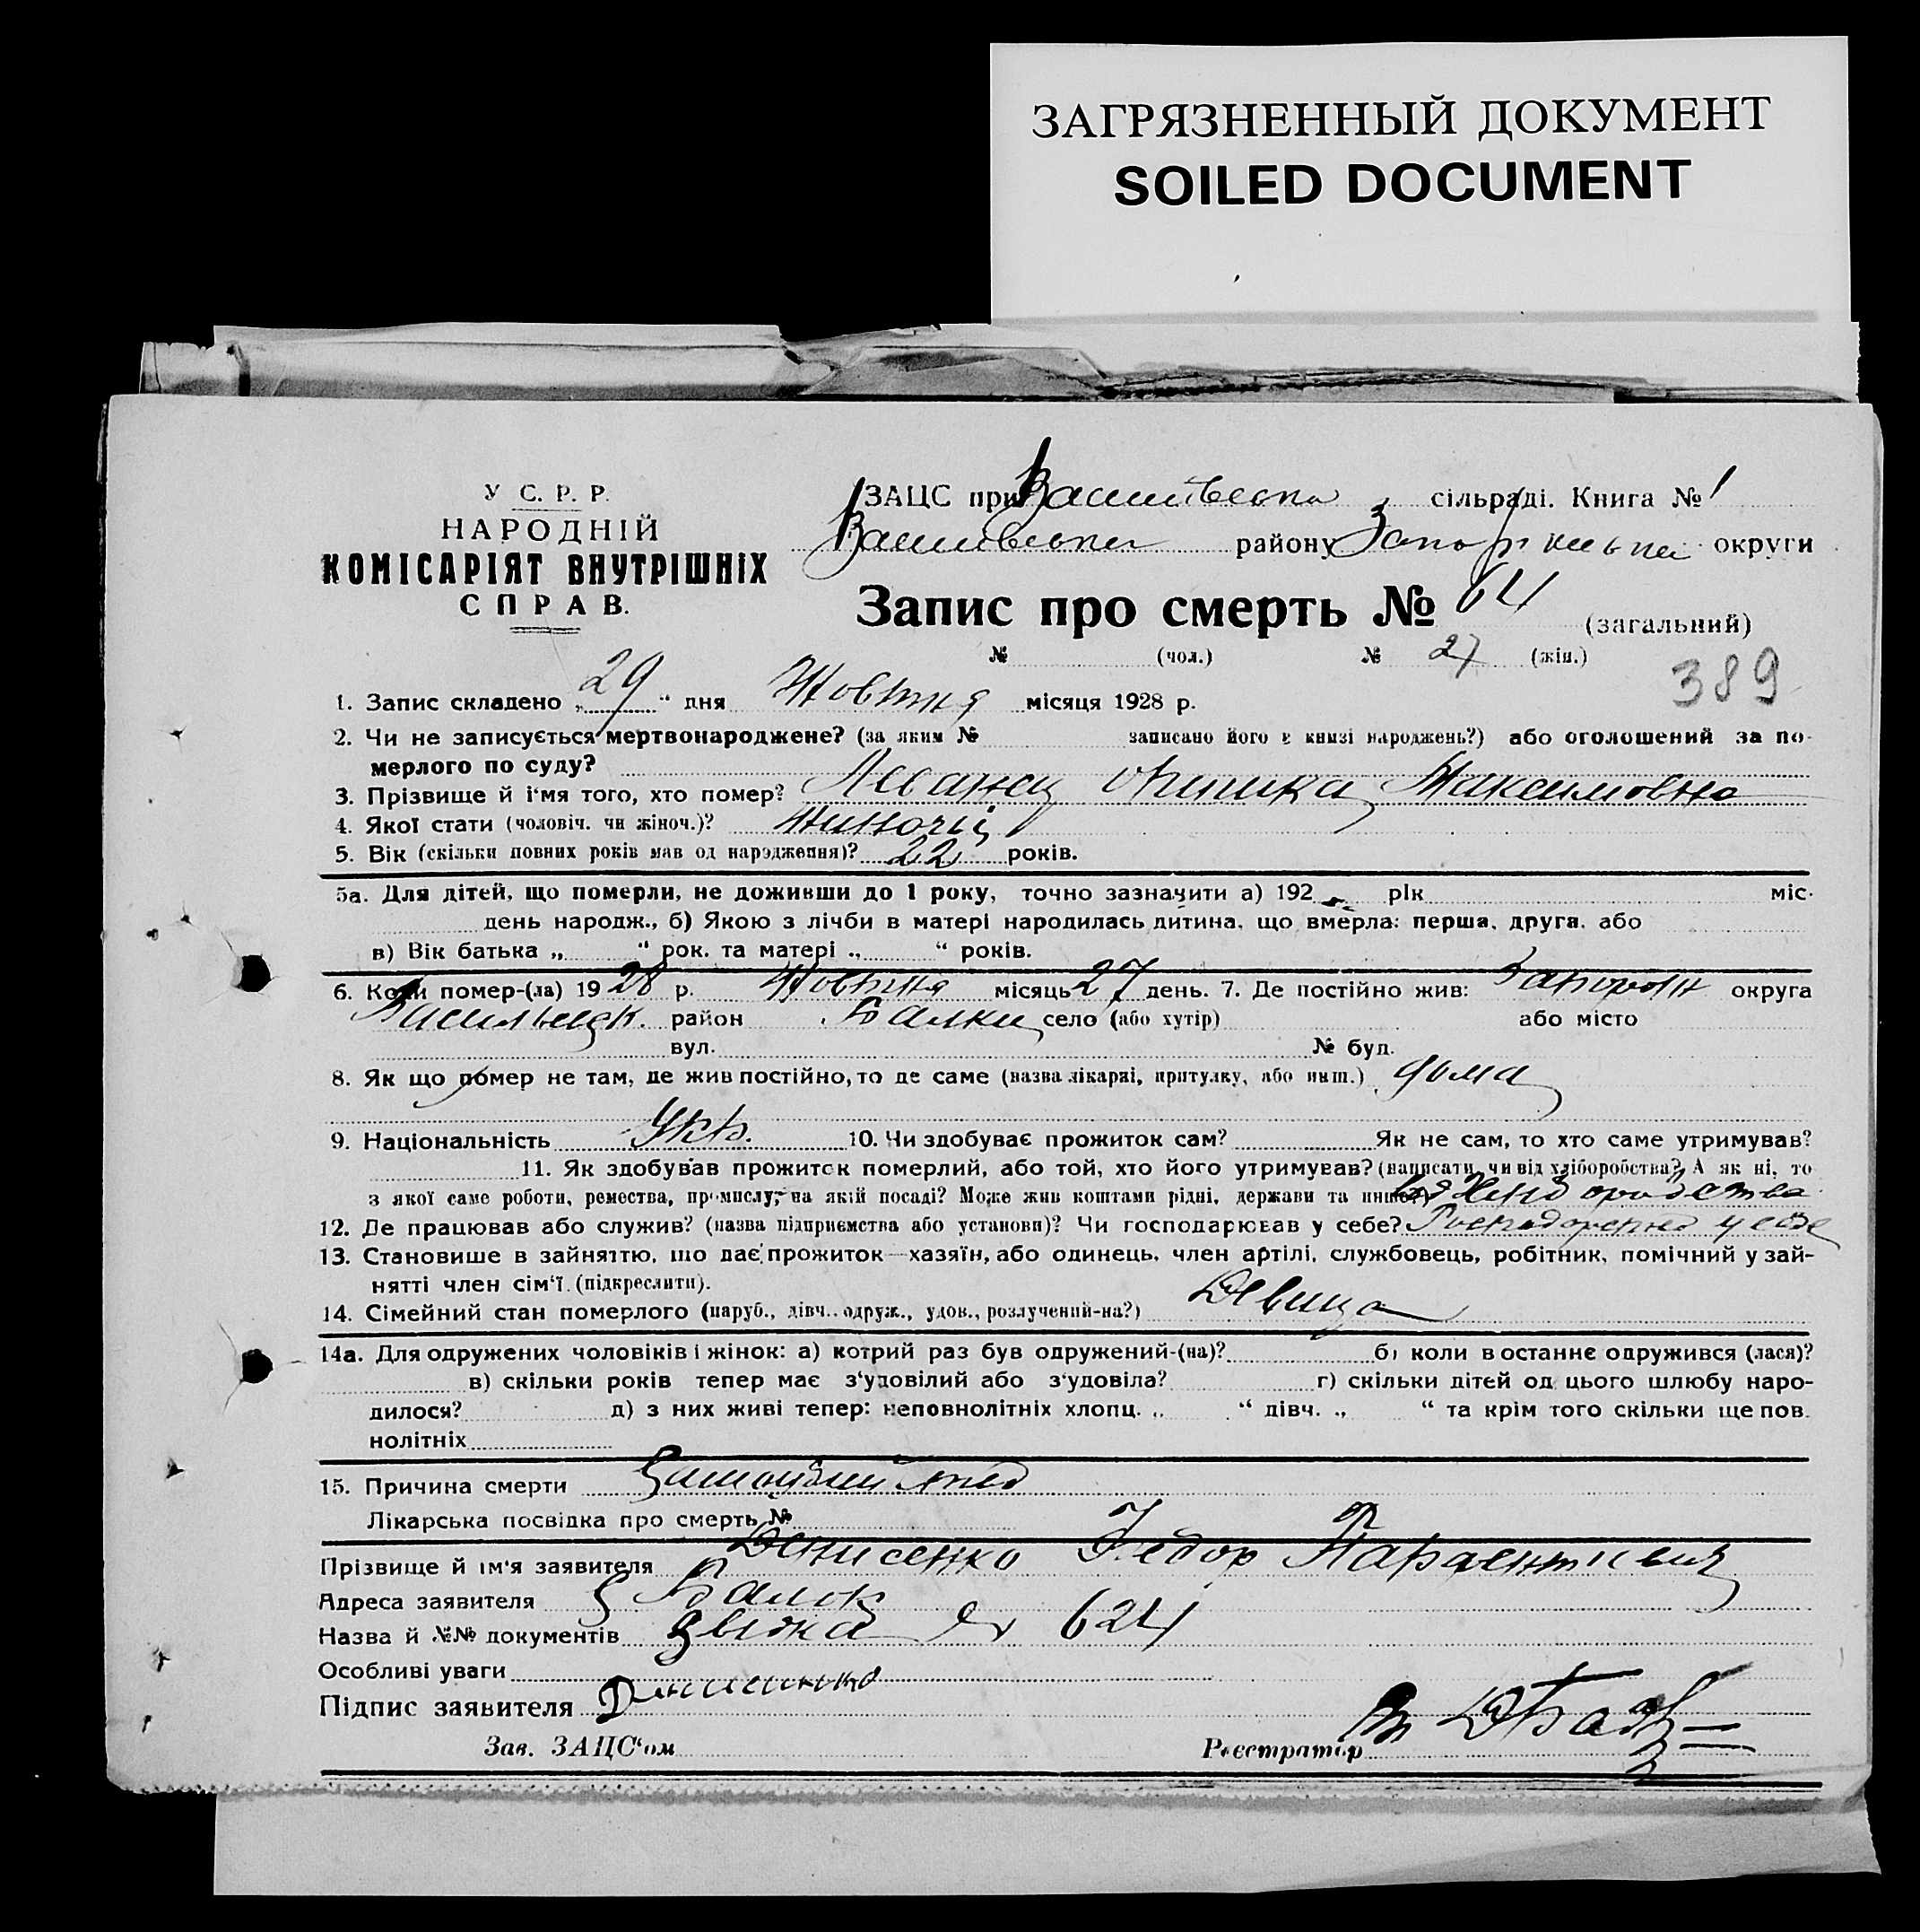 ЗАГРЯЗНЕННЫЙ ДОКУМЕНТ
SOILED DOCUMENT
У С. Р. Р.
НАРОДНІЙ
КОМІСАРІЯТ ВНУТРІШНІХ
СПРАВ.
ЗАЦС при сільраді. Книга № 1
району округи
Запис про смерть № 64 (загальний)
№ (чол.) № 27 (жін.)
389
1. Запис складено „29“ дня Жовтня місяця 1928 р.
2. Чи не записується мертвонароджене? (за яким № записано його в книзі народжень?) або оголошений за по-
мерлого по суду?
3. Прізвище й і'мя того, хто помер? Максимовна
4. Якої стати (чоловіч. чи жіноч.)? Жиночій
5. Вік (скільки повних років мав од народження)? 22 років.
5а. Для дітей, що померли, не доживши до 1 року, точно зазначити а) 192 рік міс.
день народж., б) Якою з лічби в матері народилась дитина, що вмерла: перша, друга, або
в) Вік батька „ “ рок. та матері „ “ років.
6. Коли помер-(ла) 1928 р. Жовтня місяць 27 день. 7. Де постійно жив: Запорож округа
район Балки село (або хутір) або місто
вул. № буд.
8. Як що помер не там, де жив постійно, то де саме (назва лікарні, притулку, або инш.) дома
9. Національність Укр. 10. Чи здобуває прожиток сам? Як не сам, то хто саме утримував?
11. Як здобував прожиток померлий, або той, хто його утримував? (написати, чи від хліборобства? А як ні, то
з якої саме роботи, ремества, промислу, на якій посаді? Може жив коштами рідні, держави та инше?)
12. Де працював або служив? (назва підприємства або установи)? Чи господарював у себе? у себе
13. Становише в зайняттю, що дає прожиток—хазяїн, або одинець, член артілі, службовець, робітник, помічний у зай-
нятті член сім'ї. (підкреслити).
14. Сімейний стан померлого (паруб., дівч., одруж., удов., розлучений-на?) Девица
14а. Для одружених чоловіків і жінок: а) котрий раз був одружений-(на)? б) коли в останнє одружився (лася)?
в) скільки років тепер має з'удовілий або з'удовіла? г) скільки дітей од цього шлюбу наро-
дилося? д) з них живі тепер: неповнолітніх хлопц. „ “ дівч. „ “ та крім того скільки ще пов.
нолітніх
15. Причина смерти
Лікарська посвідка про смерть №
Прізвище й ім'я заявителя Денисенко Федор Парфентиевич
Адреса заявителя Балок
Назва й №№ документів 624
Особливі уваги
Підпис заявителя Денисенко
Зав. ЗАЦС'ом Реєстратор